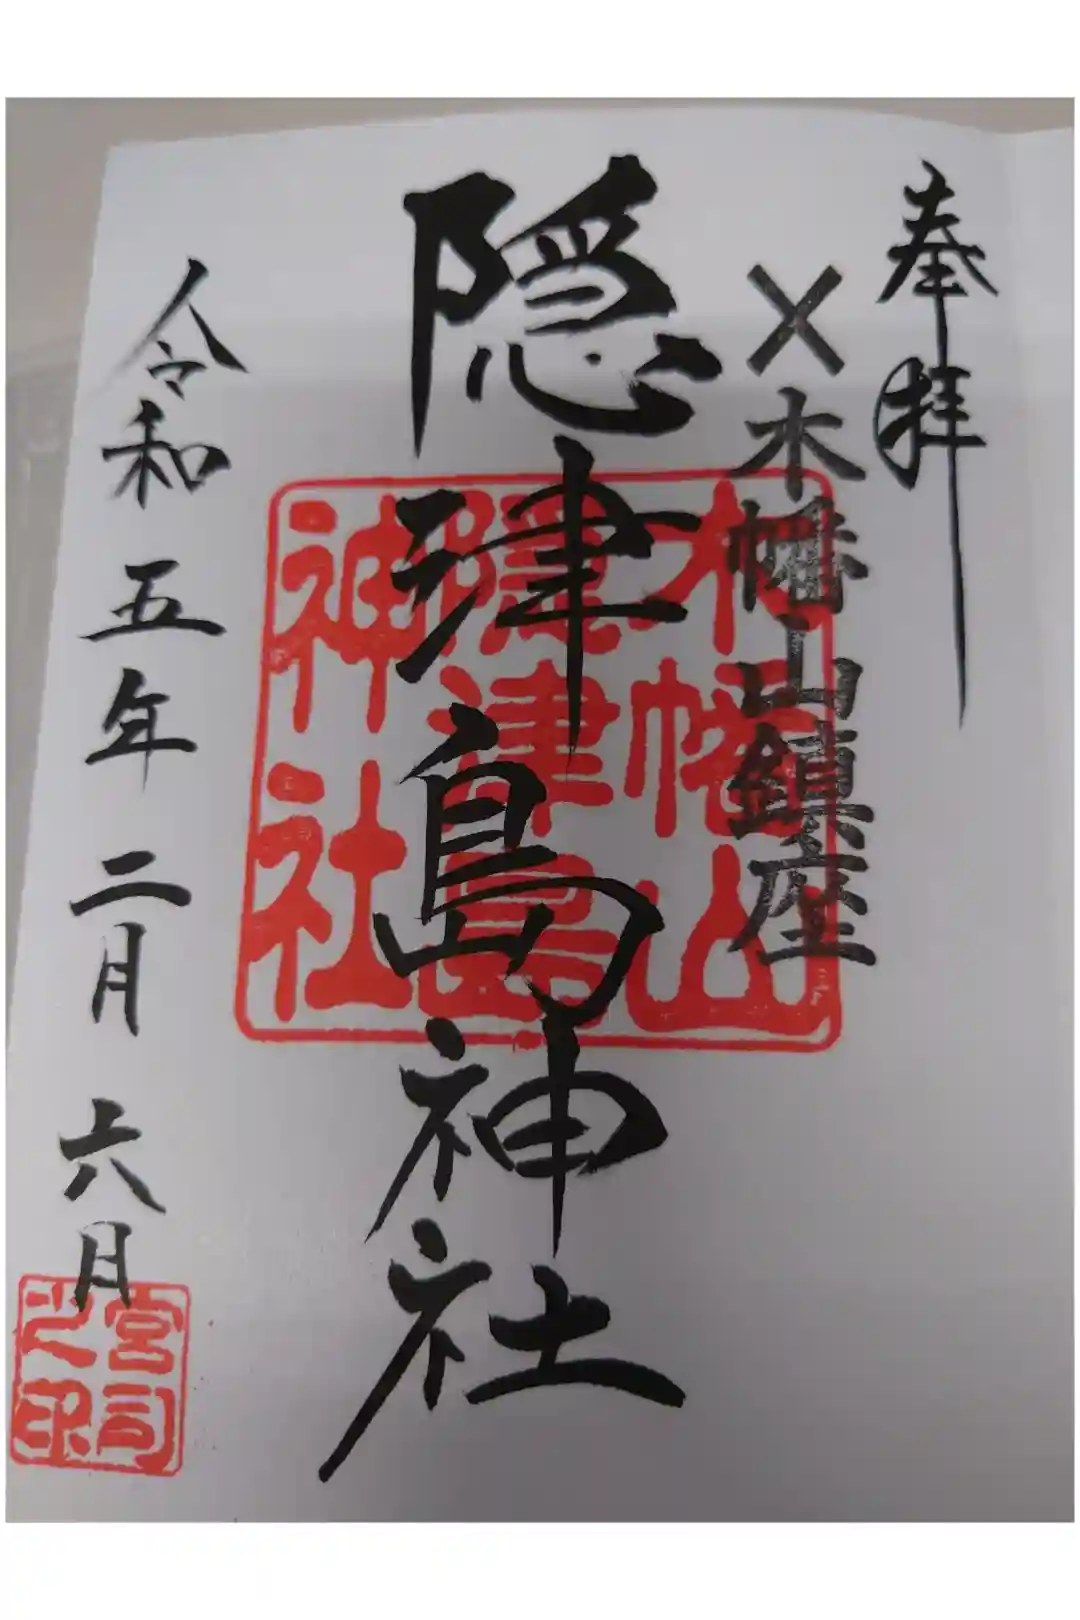 奉拝
×木幡山鎮座
隠津島神社
木幡山
隠津島
神社
令和五年二月六月
宮司
之印